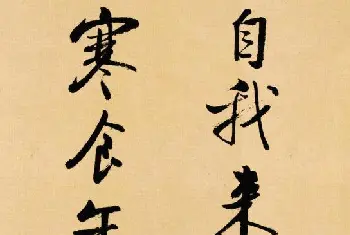 自我来
寒食年